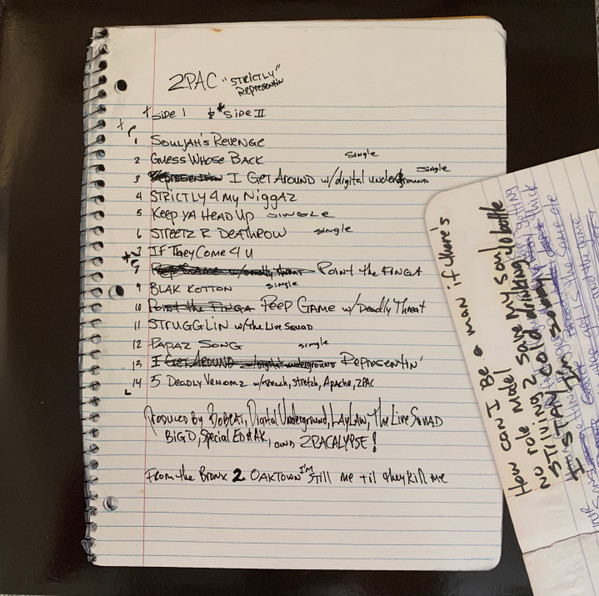 2PAC "STRICTLY"
Representin
SIDE 1 SIDE II
1 SOULJAH'S REVENGE
2 GUESS WHOSE BACK single
3 Representin I GET AROUND w/digital underground single
4 STRICTLY 4 my NiGGAZ
5 KEEP YA HEAD UP SINGLE
6 STREETZ R DEATHROW single
7 IF THEY COME 4 U
PEEP GAME w/Deadly Threat POINT THE FINGA
9 BLAK KOTTON single
10 POINT THE FINGA PEEP GAME w/DEADLY THREAT
11 STRUGGLIN w/THE LIVE SQUAD
12 PAPAZ SONG single
13 I GET AROUND w/digital underground REPRESENTIN'
14 5 DEADLY VENOMZ w/treach, stretch, Apache, 2PAC
PRODUCED BY BOBCAT, DIGITAL UNDERGROUND, LAYLAW, THE LIVE SQUAD
BIG D, SPECIAL ED & AK, and 2PACALYPSE!
FROM THE BRONX 2 OAKTOWN I'M STILL me til they kill me
How can I Be a man if there's
no role model
STRIVING 2 SAVE my soul
I STAY COLD drinking 40 bottle
I'm so